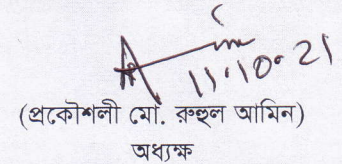 11.10.21
(প্রকৌশলী মো. রুহুল আমিন)
অধ্যক্ষ